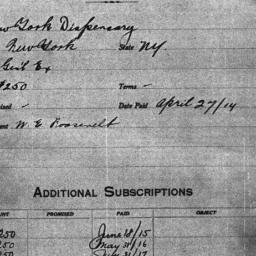 New York Dispensary
New York State NY
Gen'l Ex
$250 Terms -
ised - Date Paid April 27/14
ent W. E. Roosevelt
ADDITIONAL SUBSCRIPTIONS
UNT PROMISED PAID OBJECT
250 June 18/15
250 May 31/16
250 July 31/17